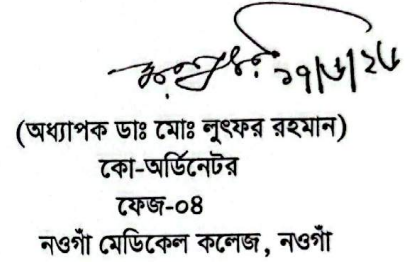 (অধ্যাপক ডাঃ মোঃ লুৎফর রহমান)
কো-অর্ডিনেটর
ফেজ-০৪
নওগাঁ মেডিকেল কলেজ, নওগাঁ